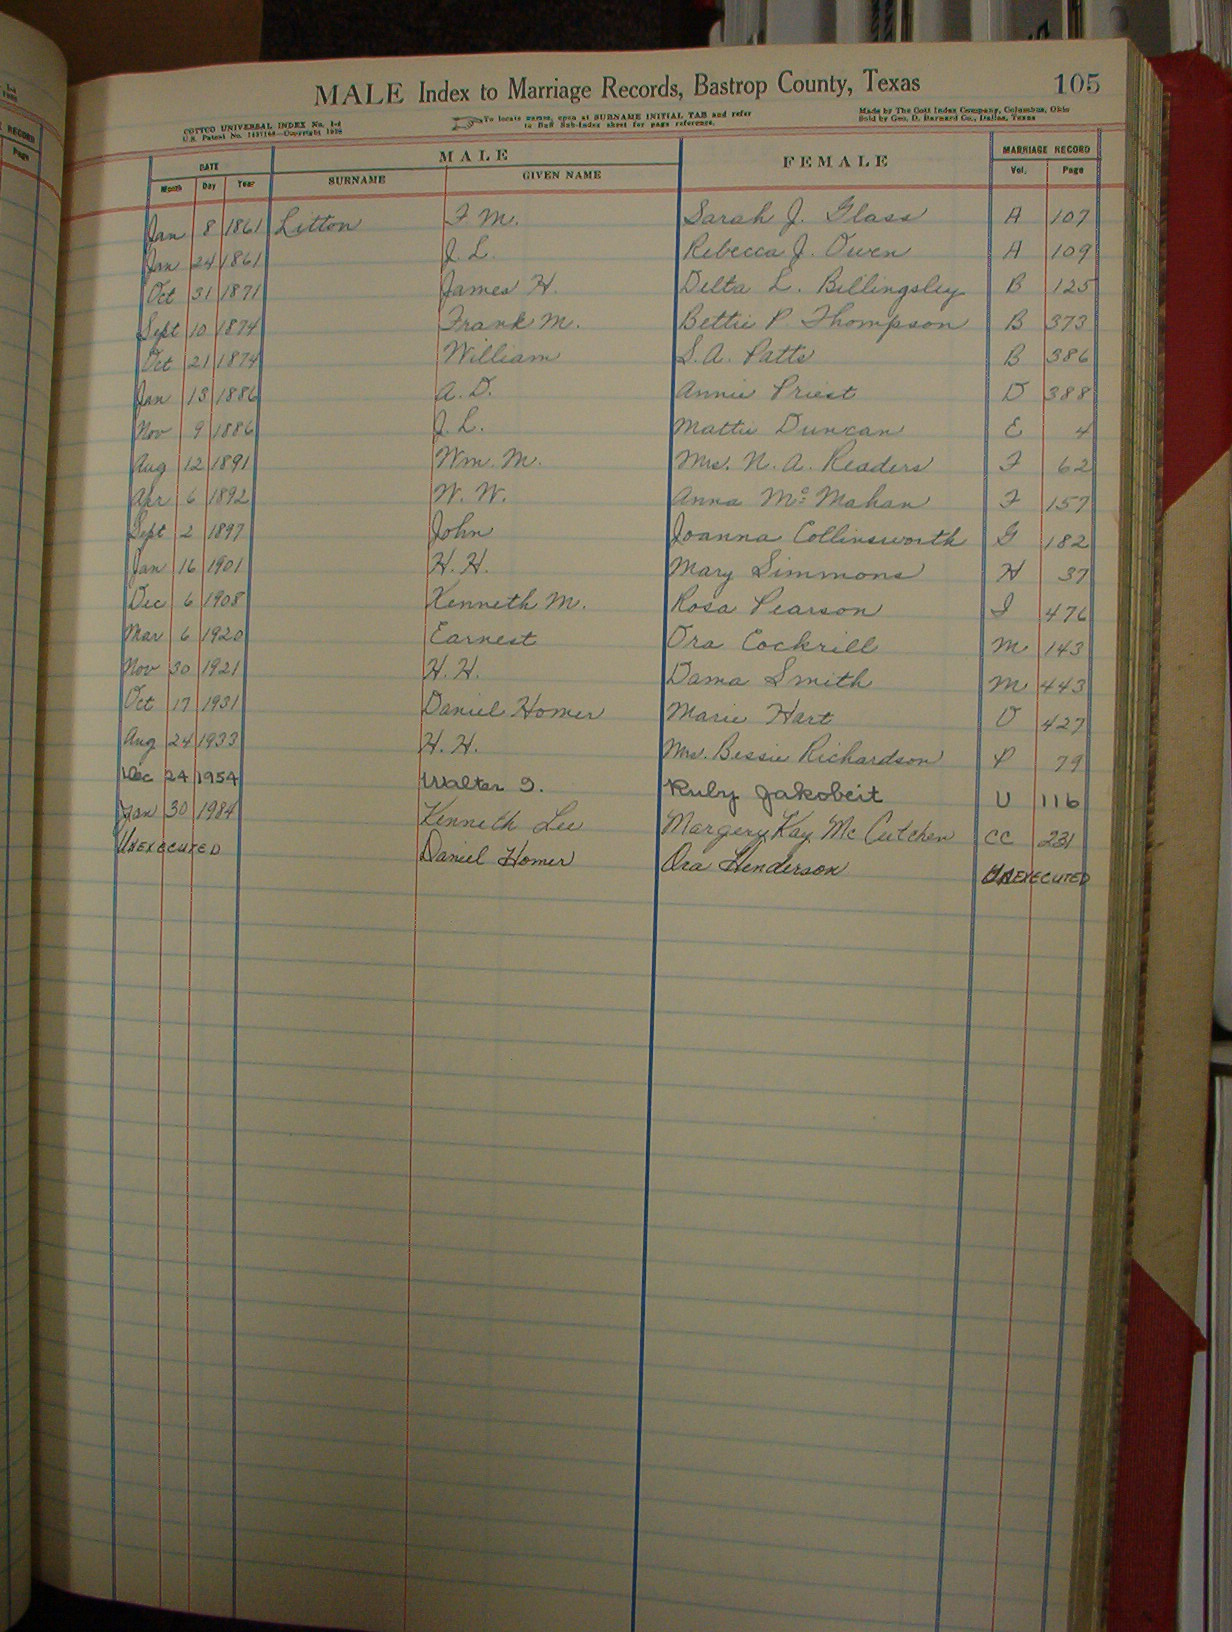 MALE Index to Marriage Records, Bastrop County, Texas 105
COTTCO UNIVERSAL INDEX No. 1-4
U.S. Patent No. Copyright
To locate names, open at SURNAME INITIAL TAB and refer
to Buff Sub-Index sheet for page reference.
Made by The Cott Index Company, Columbus, Ohio
Sold by Geo. D. Barnard Co., Dallas, Texas
RECORD
Page
DATE MALE FEMALE MARRIAGE RECORD
Month Day Year SURNAME GIVEN NAME Vol. Page
Jan 8 1861 Litton F M. Sarah J. Glass A 107
Jan 24 1861 J. L. Rebecca J. Owen A 109
Oct 31 1871 James H. Delta L. Billingsley B 125
Sept 10 1874 Frank M. Bettie P. Thompson B 373
Oct 21 1874 William S. A. Patts B 386
Jan 13 1886 A. D. Annie Priest D 388
Nov 9 1886 J. L. Mattie Duncan E 4
Aug 12 1891 Wm. M. Mrs. N. A. Readers F 62
Apr 6 1892 W. W. Anna Mc Mahan F 157
Sept 2 1897 John Joanna Collinsworth G 182
Jan 16 1901 H. H. Mary Simmons H 37
Dec 6 1908 Kenneth M. Rosa Pearson I 476
Mar 6 1920 Earnest Ora Cockrill M 143
Nov 30 1921 H. H. Dama Smith M 443
Oct 17 1931 Daniel Homer Marie Hart O 427
Aug 24 1933 H. H. Mrs. Bessie Richardson P 79
Dec 24 1954 Walter I. Ruby Jakobeit U 116
Jan 30 1984 Kenneth Lee Margery Kay McCutchen CC 231
UNEXECUTED Daniel Homer Ora Henderson UNEXECUTED